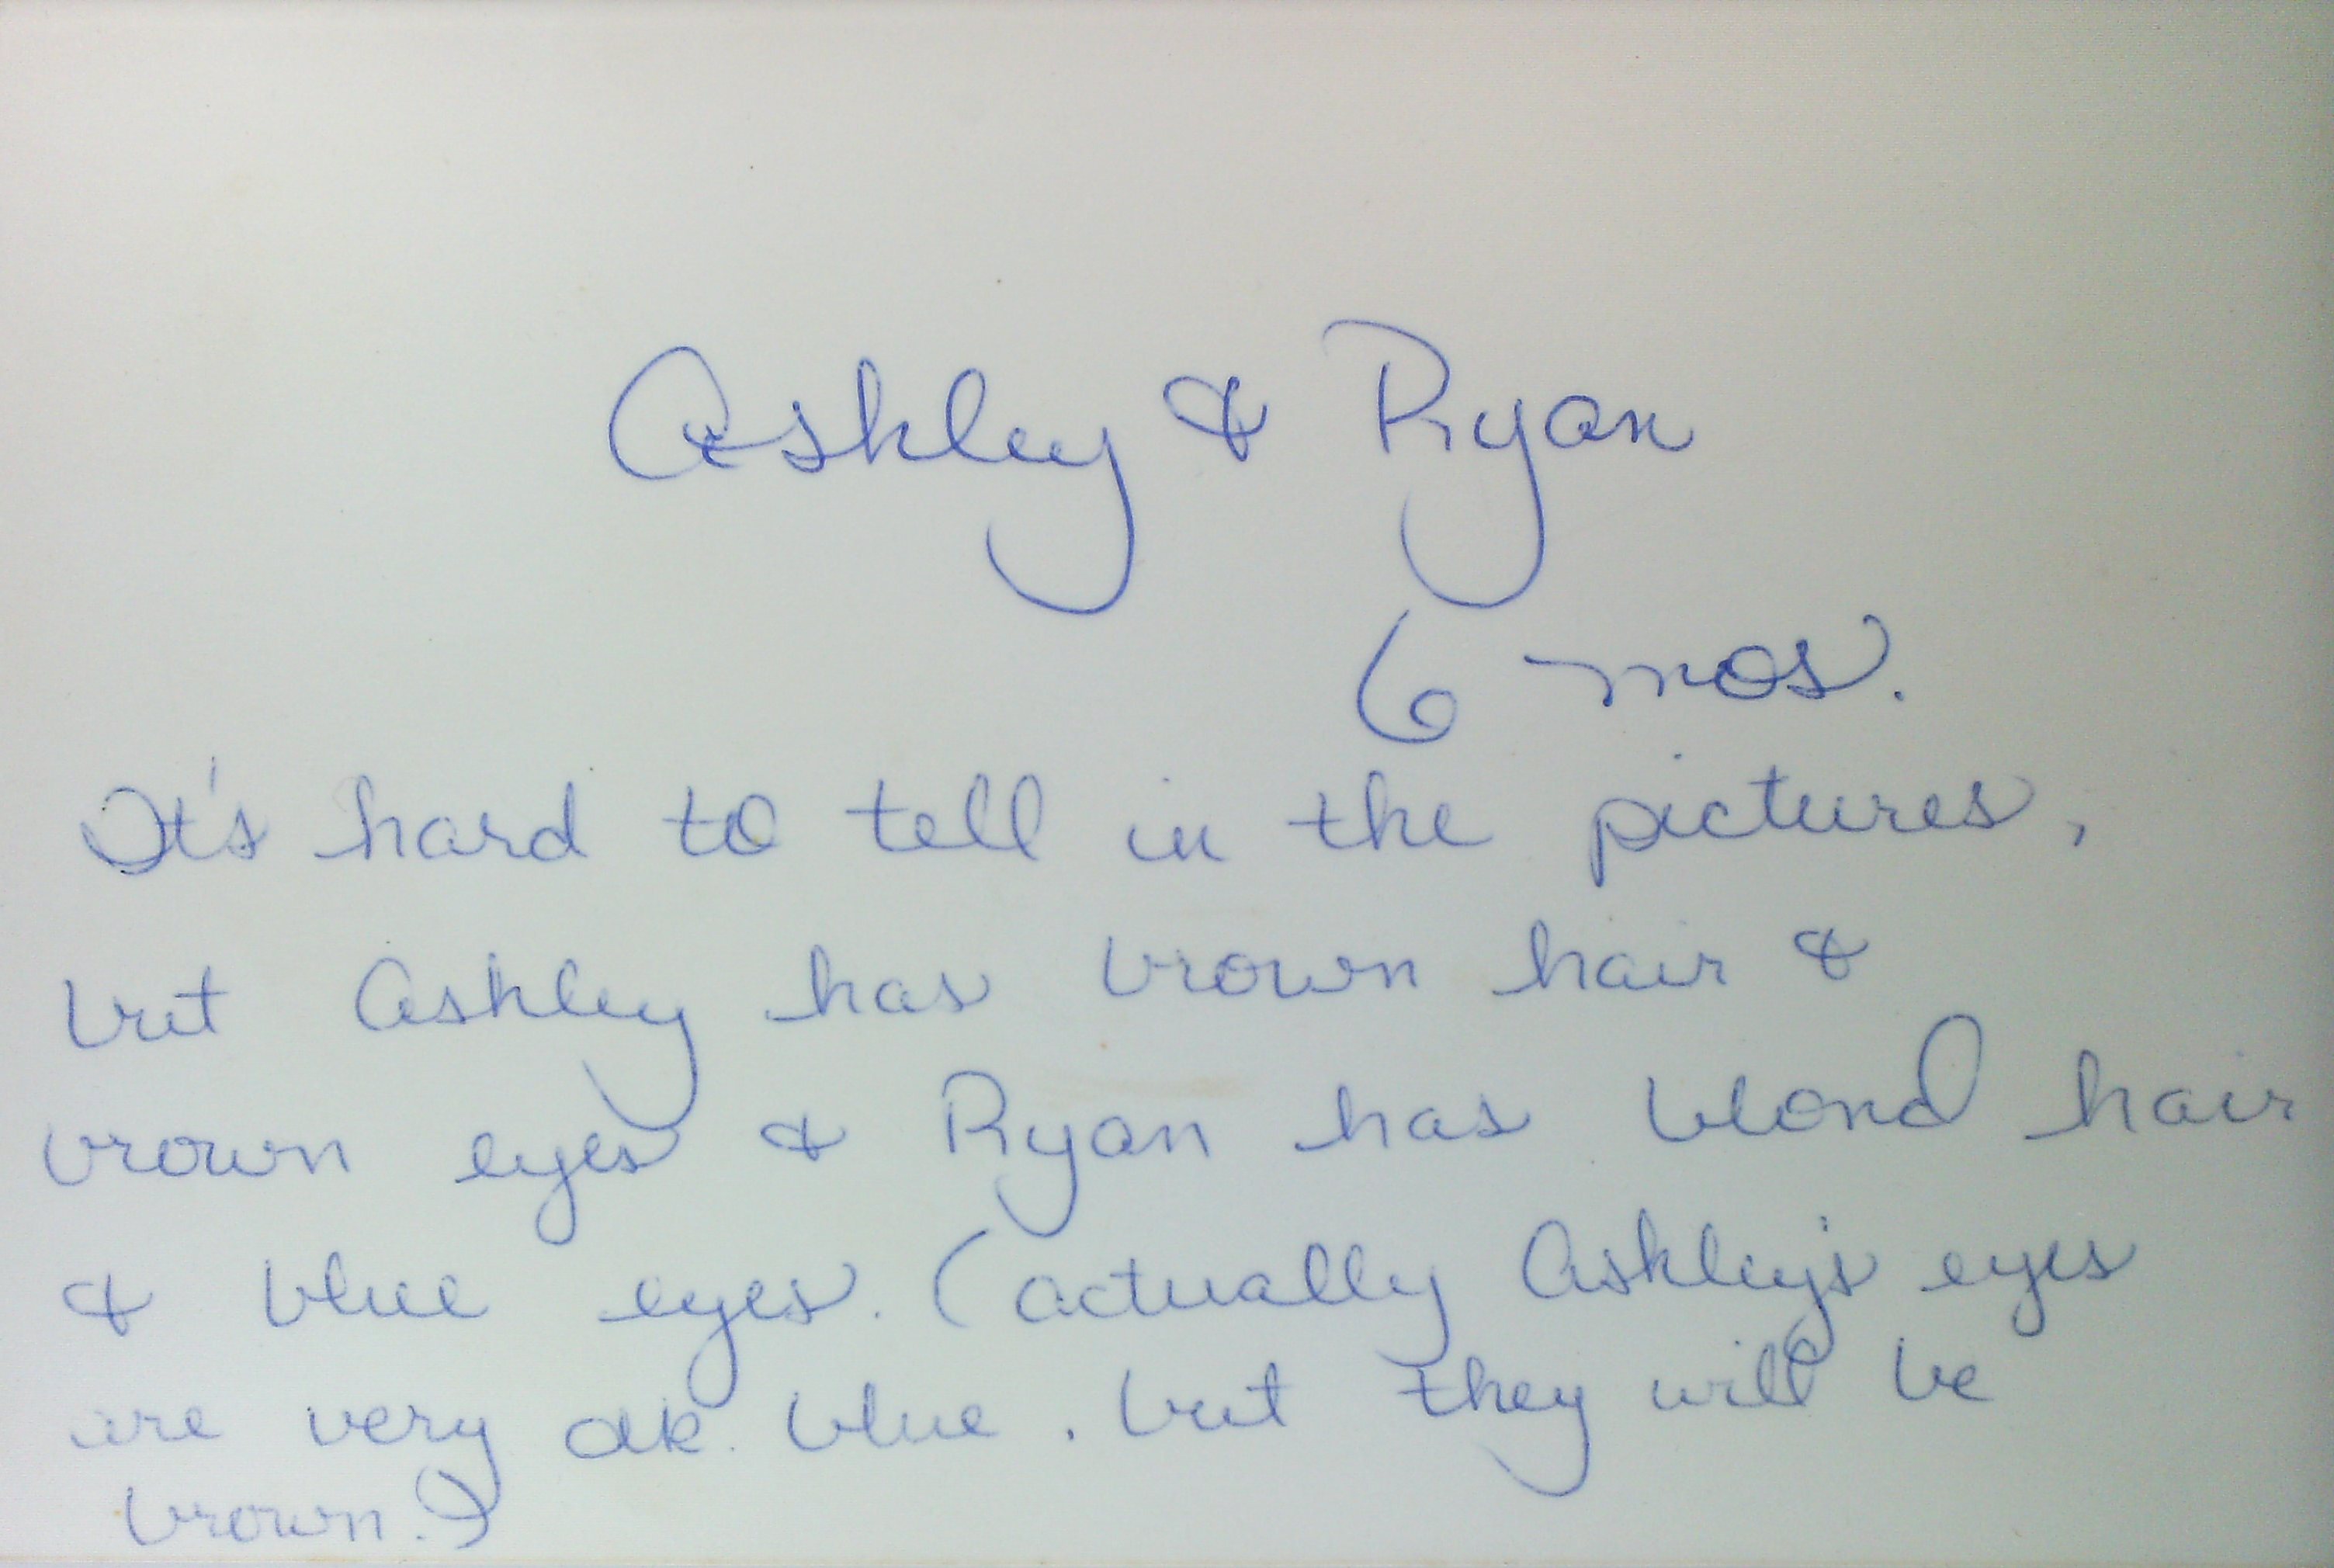 Ashley & Ryan
6 mos.
It's hard to tell in the pictures,
but Ashley has brown hair &
brown eyes & Ryan has blond hair
& blue eyes. (actually Ashley's eyes
are very dk. blue. but they will be
brown.)